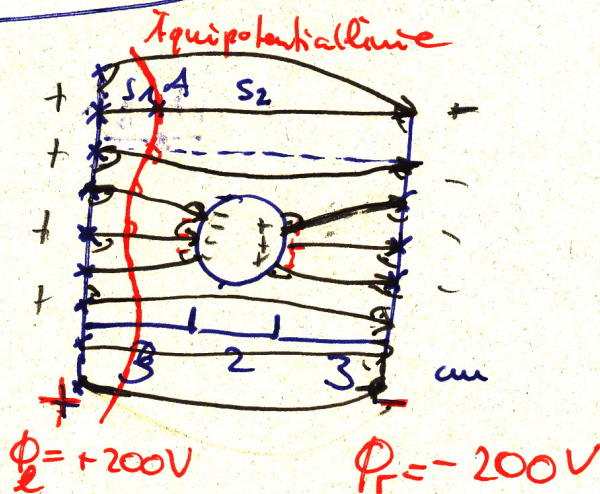 Äquipotentiallinie
S1 A S2
+ -
+ -
+ -
+ -
3 2 3 cm
+ -
φl = +200V φr = -200V